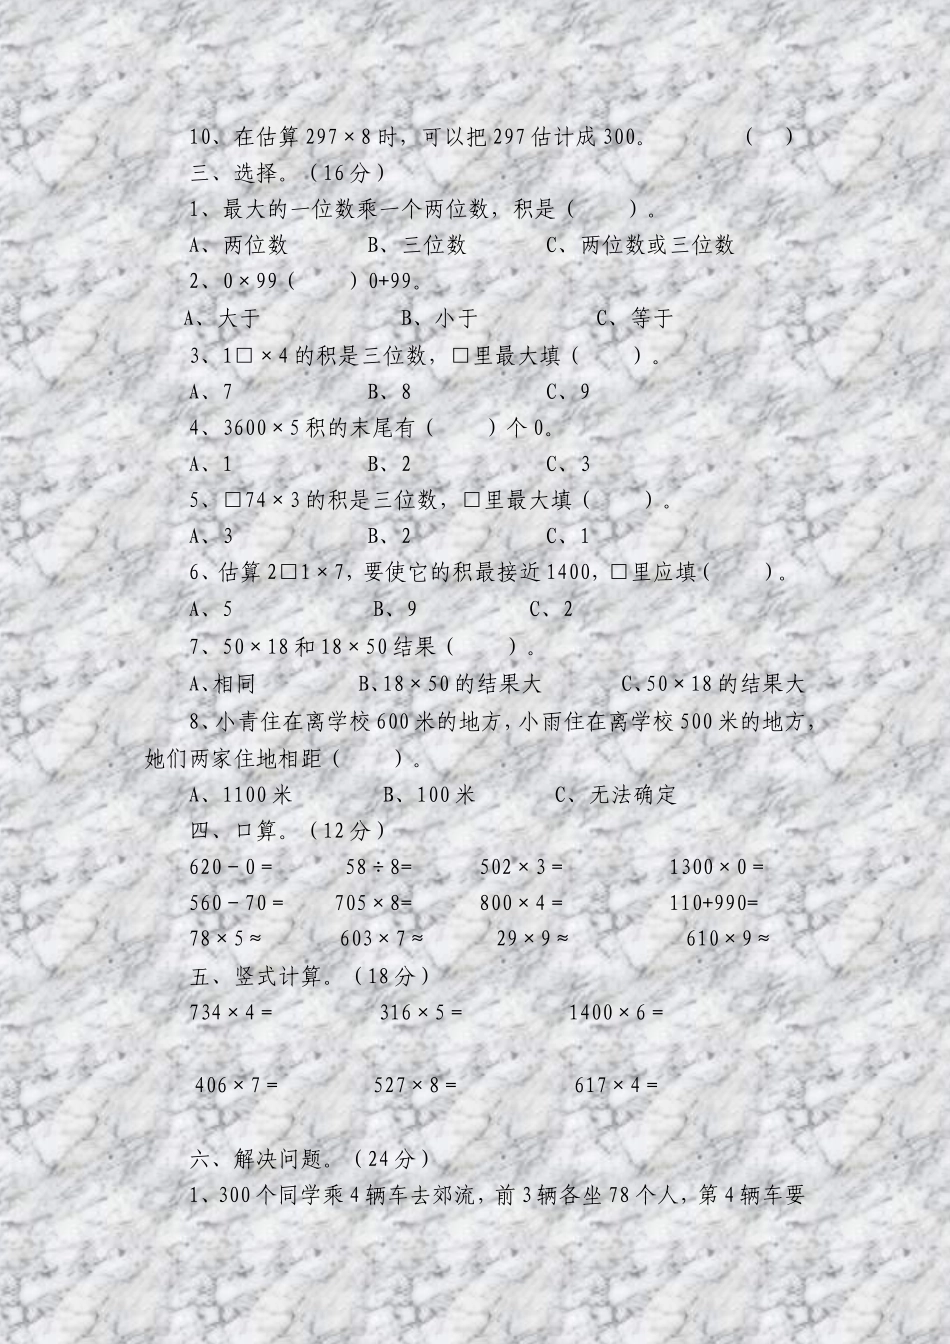 10、在估算 297×8 时，可以把 297 估计成 300。 （ ）
三、选择。（16 分）
1、最大的一位数乘一个两位数，积是（ ）。
A、两位数 B、三位数 C、两位数或三位数
2、0×99（ ）0+99。
A、大于 B、小于 C、等于
3、1□×4 的积是三位数，□里最大填（ ）。
A、7 B、8 C、9
4、3600×5 积的末尾有（ ）个 0。
A、1 B、2 C、3
5、□74×3 的积是三位数，□里最大填（ ）。
A、3 B、2 C、1
6、估算 2□1×7，要使它的积最接近 1400，□里应填（ ）。
A、5 B、9 C、2
7、50×18 和 18×50 结果（ ）。
A、相同 B、18×50 的结果大 C、50×18 的结果大
8、小青住在离学校 600 米的地方，小雨住在离学校 500 米的地方，
她们两家住地相距（ ）。
A、1100 米 B、100 米 C、无法确定
四、口算。（12 分）
620－0＝ 58÷8= 502×3＝ 1300×0＝
560－70＝ 705×8= 800×4＝ 110+990=
78×5≈ 603×7≈ 29×9≈ 610×9≈
五、竖式计算。（18 分）
734×4＝ 316×5＝ 1400×6＝
406×7＝ 527×8＝ 617×4＝
六、解决问题。（24 分）
1、300 个同学乘 4 辆车去郊流，前 3 辆各坐 78 个人，第 4 辆车要